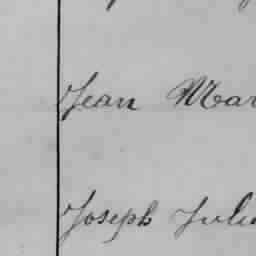 Jean Mar
Joseph Juli